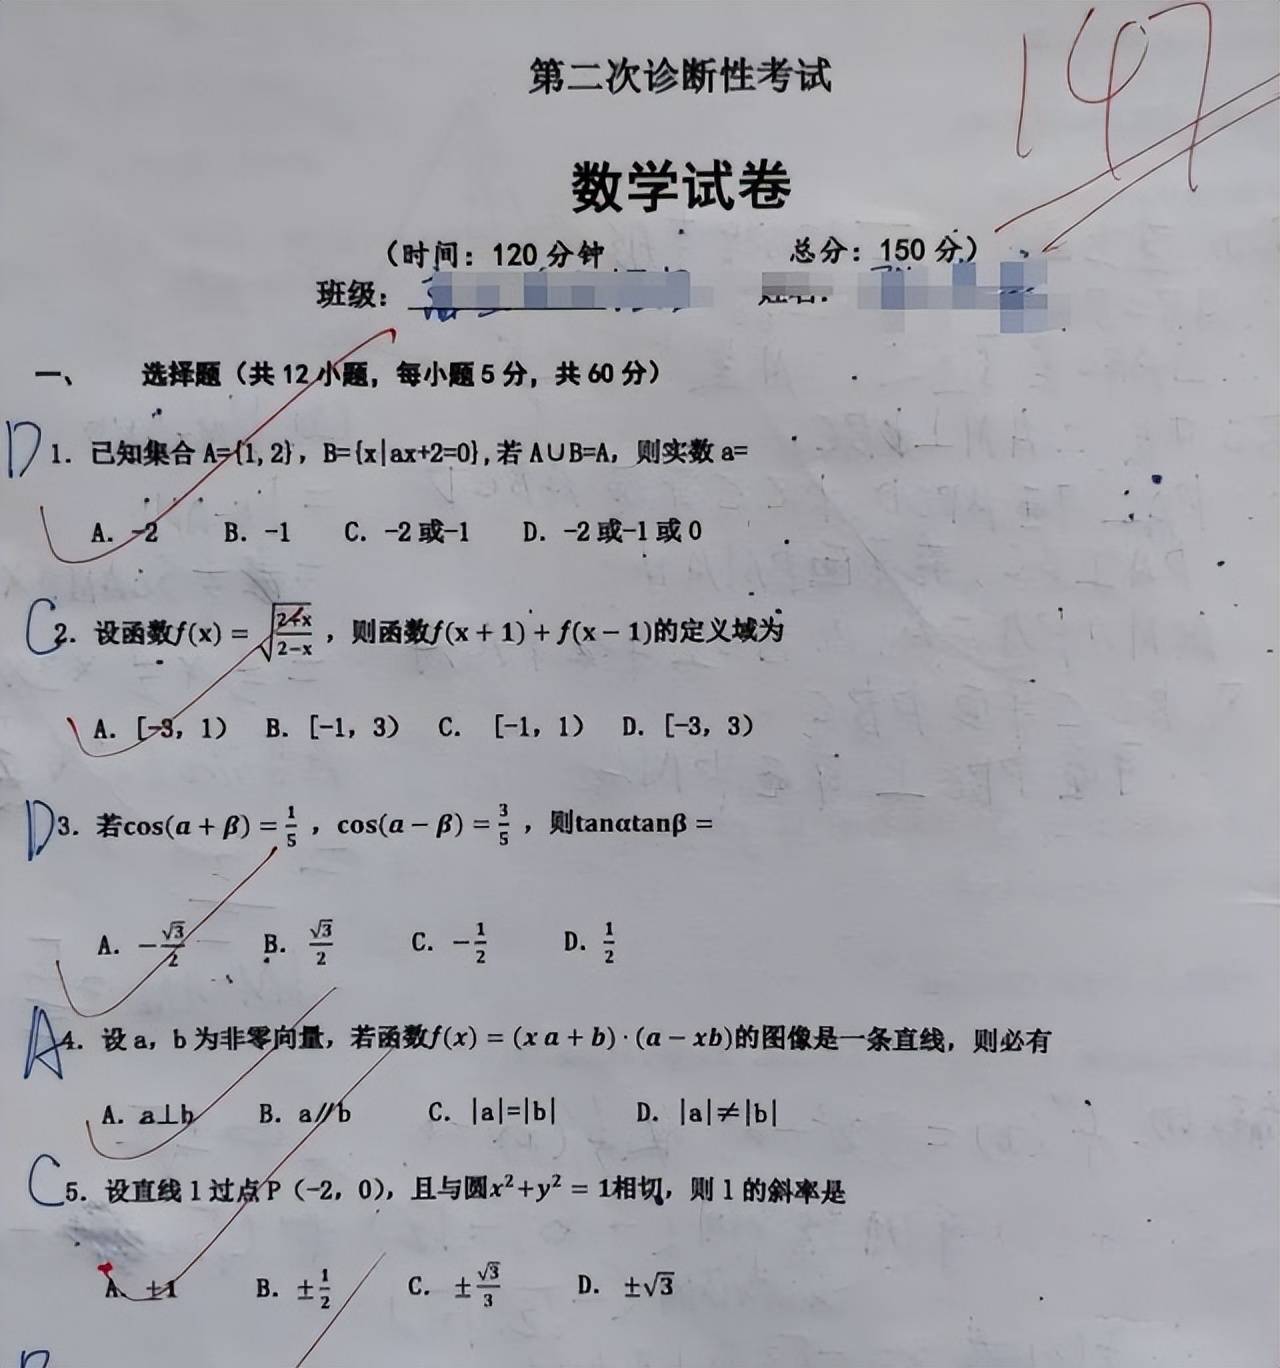 147
第二次诊断性考试
数学试卷
（时间：120 分钟 总分：150 分）
班级：
一、 选择题（共 12 小题，每小题 5 分，共 60 分）
D 1. 已知集合 A={1, 2}，B={x|ax+2=0}, 若 A∪B=A，则实数 a=
A. -2 B. -1 C. -2 或-1 D. -2 或-1 或 0
C 2. 设函数f(x) = √((2+x)/(2-x))，则函数f(x + 1) + f(x − 1)的定义域为
A. [-3, 1） B. [-1, 3） C. [-1, 1） D. [-3, 3）
D 3. 若cos(α + β) = 1/5，cos(α − β) = 3/5，则tanαtanβ =
A. −√3/2 B. √3/2 C. −1/2 D. 1/2
A 4. 设 a，b 为非零向量，若函数f(x) = (x a + b)·(a − xb)的图像是一条直线，则必有
A. a⊥b B. a∥b C. |a|=|b| D. |a|≠|b|
C 5. 设直线 l 过点 P（-2, 0），且与圆x²+y² = 1相切，则 l 的斜率是
A. ±1 B. ±1/2 C. ±√3/3 D. ±√3